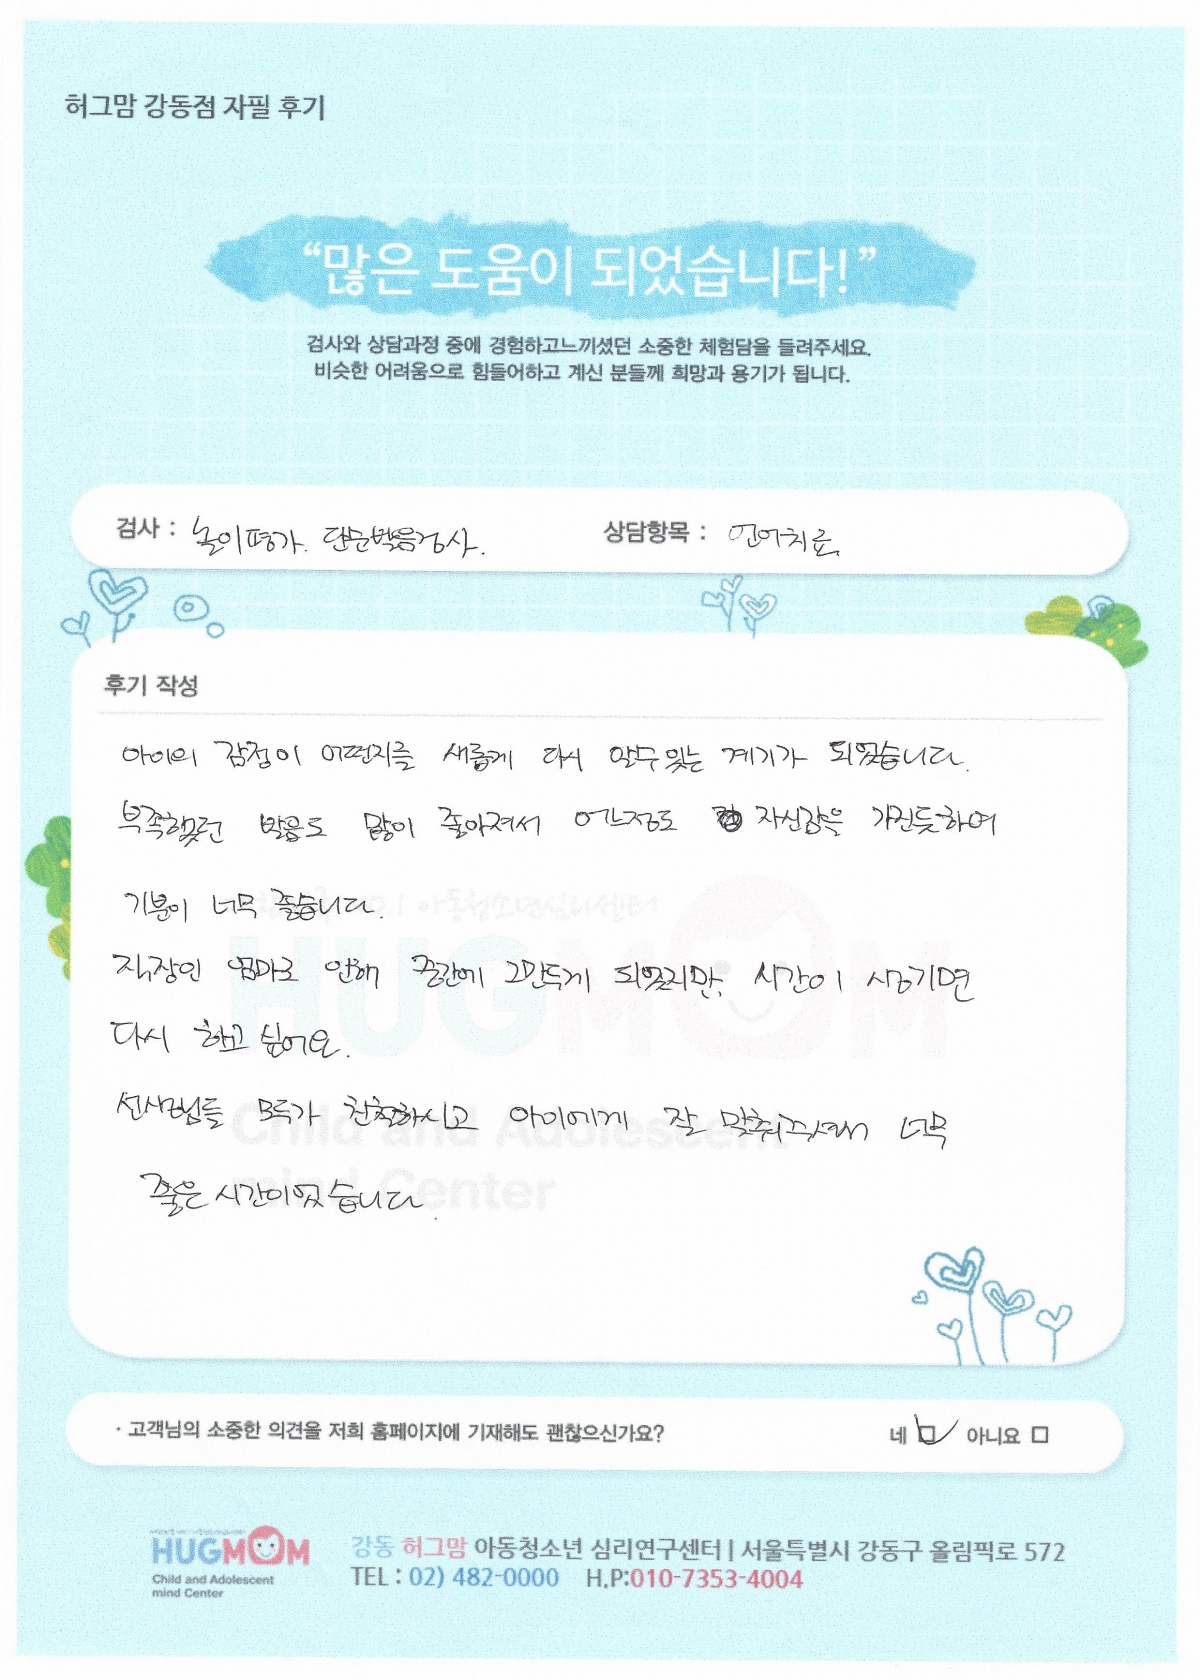 허그맘 강동점 자필 후기
“많은 도움이 되었습니다!”
검사와 상담과정 중에 경험하고느끼셨던 소중한 체험담을 들려주세요.
비슷한 어려움으로 힘들어하고 계신 분들께 희망과 용기가 됩니다.
검사 : 놀이평가. 단순발음검사. 상담항목 : 언어치료
후기 작성
아이의 감정이 어떤지를 새롭게 다시 알수있는 계기가 되었습니다.
부족했던 발음도 많이 좋아져서 어느정도 자신감을 가진듯하여
기분이 너무 좋습니다.
직장인 엄마로 인해 중간에 그만두게 되었지만, 시간이 생기면
다시 하고 싶어요.
선생님들 모두가 친절하시고 아이에게 잘 맞춰주셔서 너무
좋은 시간이었습니다.
HUGMOM
Child and Adolescent
mind Center
· 고객님의 소중한 의견을 저희 홈페이지에 기재해도 괜찮으신가요? 네 아니요
HUGMOM
Child and Adolescent
mind Center
강동 허그맘 아동청소년 심리연구센터 | 서울특별시 강동구 올림픽로 572
TEL : 02) 482-0000 H.P:010-7353-4004